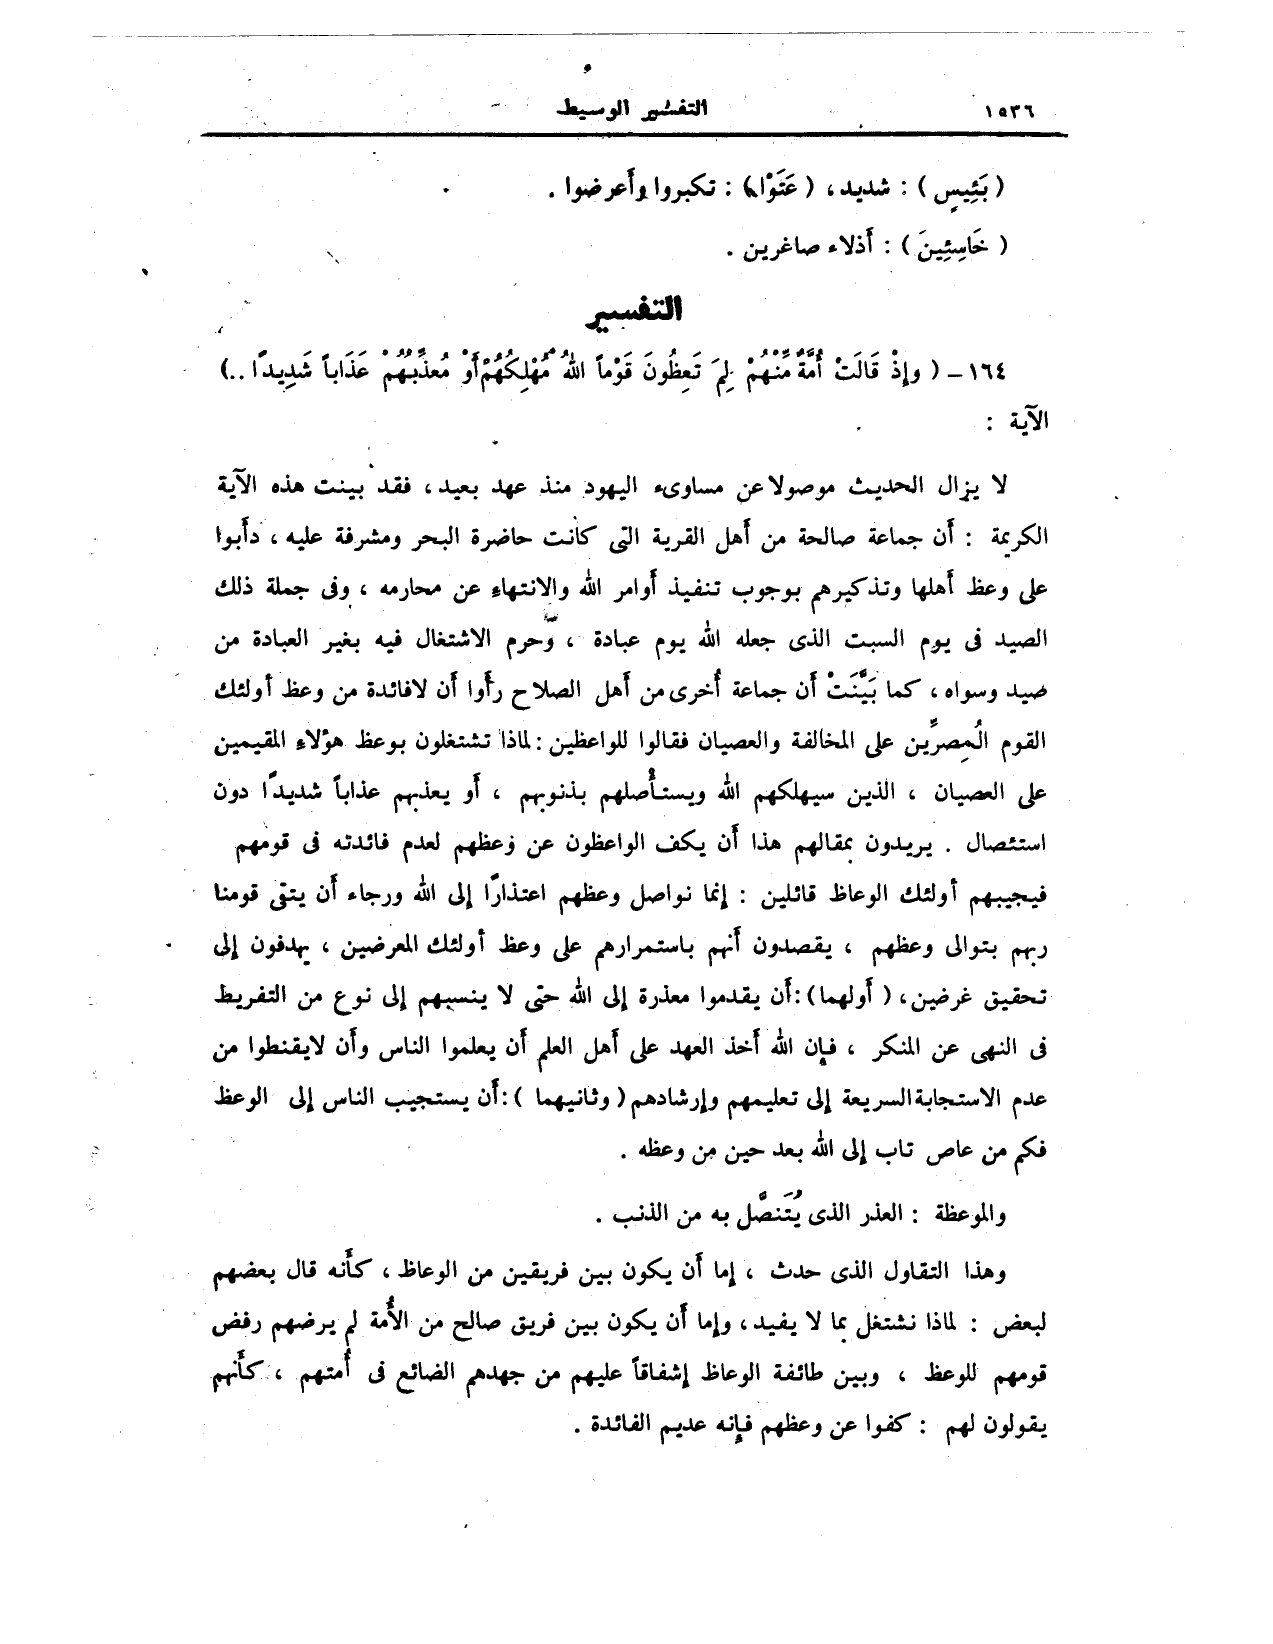 ١٥٣٦ التفسير الوسيط
( بَئِيسٍ ) : شديد ، ( عَتَوْا ) : تكبروا وأعرضوا .
( خَاسِئِينَ ) : أذلاء صاغرين .
التفسير
١٦٤ – ( وإِذْ قَالَتْ أُمَّةٌ مِّنْهُمْ لِمَ تَعِظُونَ قَوْماً اللهُ مُهْلِكُهُمْ أَوْ مُعَذِّبُهُمْ عَذَاباً شَدِيدًا ..)
الآية :
لا يزال الحديث موصولا عن مساوىء اليهود منذ عهد بعيد ، فقد بينت هذه الآية
الكريمة : أن جماعة صالحة من أهل القرية التى كانت حاضرة البحر ومشرفة عليه ، دأبوا
على وعظ أهلها وتذكيرهم بوجوب تنفيذ أوامر الله والانتهاء عن محارمه ، وفى جملة ذلك
الصيد فى يوم السبت الذى جعله الله يوم عبادة ، وحرم الاشتغال فيه بغير العبادة من
صيد وسواه ، كما بَيَّنَتْ أن جماعة أُخرى من أهل الصلاح رأوا أن لافائدة من وعظ أولئك
القوم الُمصِرِّين على المخالفة والعصيان فقالوا للواعظين : لماذا تشتغلون بوعظ هؤلاء المقيمين
على العصيان ، الذين سيهلكهم الله ويستأصلهم بذنوبهم ، أو يعذبهم عذاباً شديدًا دون
استئصال . يريدون بمقالهم هذا أن يكف الواعظون عن وعظهم لعدم فائدته فى قومهم
فيجيبهم أولئك الوعاظ قائلين : إنما نواصل وعظهم اعتذارًا إلى الله ورجاء أن يتقى قومنا
ربهم بتوالى وعظهم ، يقصدون أنهم باستمرارهم على وعظ أولئك المعرضين ، يهدفون إلى
تحقيق غرضين ، ( أولهما ) : أن يقدموا معذرة إلى الله حتى لا ينسبهم إلى نوع من التفريط
فى النهى عن المنكر ، فإن الله أخذ العهد على أهل العلم أن يعلموا الناس وأن لايقنطوا من
عدم الاستجابة السريعة إلى تعليمهم وإرشادهم ( وثانيهما ) : أن يستجيب الناس إلى الوعظ
فكم من عاص تاب إلى الله بعد حين من وعظه .
والموعظة : العذر الذى يُتَنصَّل به من الذنب .
وهذا التقاول الذى حدث ، إما أن يكون بين فريقين من الوعاظ ، كأنه قال بعضهم
لبعض : لماذا نشتغل بما لا يفيد ، وإما أن يكون بين فريق صالح من الأُمة لم يرضهم رفض
قومهم للوعظ ، وبين طائفة الوعاظ إشفاقاً عليهم من جهدهم الضائع فى أُمتهم ، كأنهم
يقولون لهم : كفوا عن وعظهم فإنه عديم الفائدة .